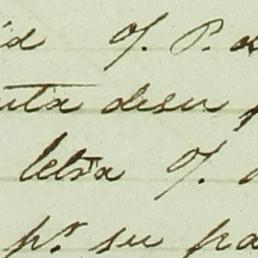 id q. P. d
uta desu p
letra q.
pr. su pa